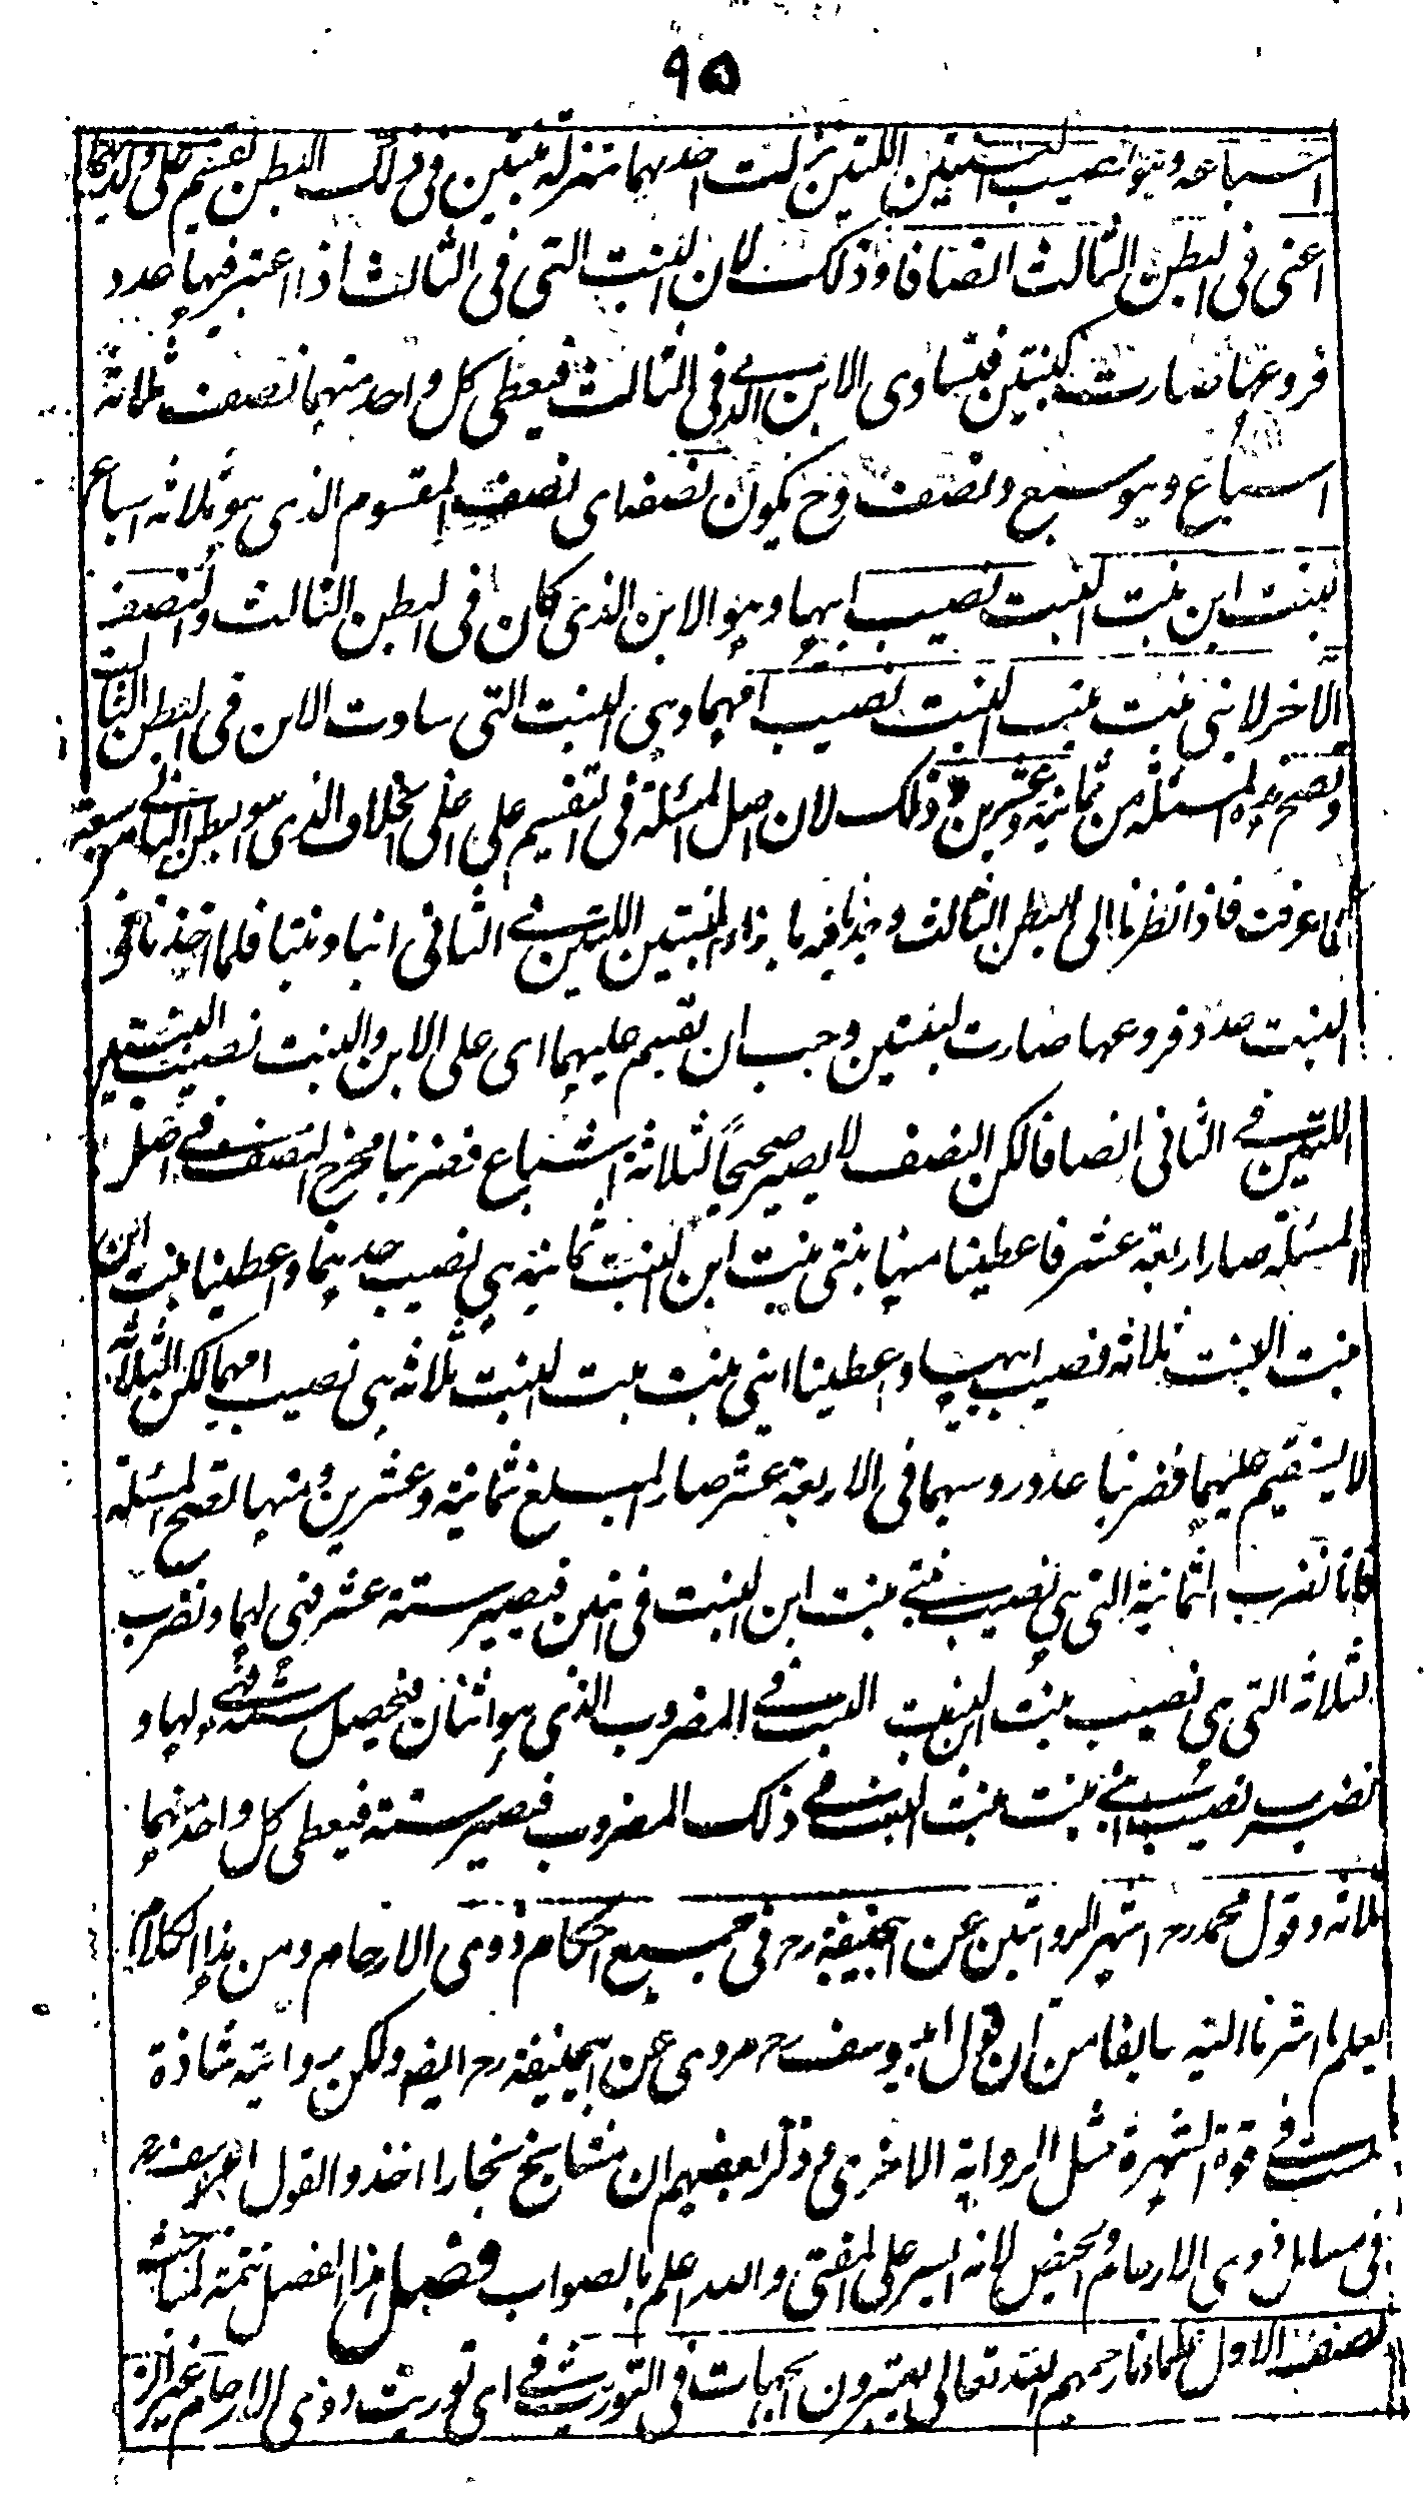 ٩٥
اسباعه وهو نصيب البنتين اللتين نزلت احديهما منزلة بنتين فى ذلك البطن يقسم على ولديهما
اعنى فى البطن الثالث انصافا وذلك لان البنت التى فى الثالث اذا اعتبر فيها عدد
فروعها صارت كبنتين فتساوى الابن الذى فى الثالث فيعطى كل واحد منهما نصف ثلاثة
اسباع وهو سبع ونصف وح يكون نصفه اى نصف المقسوم الذى هو ثلاثة اسباع
لبنت ابن بنت البنت نصيب ابيها وهو الابن الذى كان فى البطن الثالث والنصف
الآخر لابنى بنت بنت البنت نصيب امهما وهى البنت التى ساوت الابن فى البطن الثالث
وتصح هذه المسئلة من ثمانية وعشرين وذلك لان اصل المسئلة فى التقسيم على اعلى الخلاف الذى هو البطن الثانى سبعة
كما عرفت فاذا نظرنا الى البطن الثالث وجدنا فيه بازاء البنتين اللتين فى الثانى ابنا وبنتا فلما اخذنا فى
البنت عدد فروعها صارت كبنتين وجب ان يقسم عليهما اى على الابن والبنت نصيب البنتين
اللتين فى الثانى انصافا لكن النصف لا يصير صحيحا لثلاثة اسباع فضربنا مخرج النصف فى اصل
المسئلة صار اربعة عشر فاعطينا منها بنتى بنت ابن البنت ثمانية هى نصيب جدهما واعطينا بنت ابن
بنت البنت ثلاثة نصيب ابيها واعطينا ابنى بنت بنت البنت ثلاثة هى نصيب امهما لكن الثلاثة
لا يستقيم عليهما فضربنا عدد رؤسهما فى الاربعة عشر صار المبلغ ثمانية وعشرين ومنها تصح المسئلة
فانا نضرب الثمانية التى هى نصيب بنتى بنت ابن البنت فى اثنين فيصير ستة عشر فهى لهما ونضرب
الثلاثة التى هى نصيب بنت ابن بنت البنت فى المضروب الذى هو اثنان فيحصل ستة فهى لها و
نضرب نصيب ابنى بنت بنت البنت فى ذلك المضروب فيصير ستة فيعطى كل واحد منهما
ثلاثة وقول محمد رح اشهر الروايتين عن ابيحنيفة رح فى جميع احكام ذوى الارحام ومن هذا الكلام
يعلم ما اشرنا اليه سابقا من ان قول ابى يوسف رح مروى عن ابيحنيفة رح ايضا ولكن برواية شاذة
ليست فى قوة الشهرة مثل الرواية الاخرى وذكر بعضهم ان مشايخ بخارا اخذوا بقول ابى يوسف رح
فى مسائل ذوى الارحام والحيض لانه ايسر على المفتى والله اعلم بالصواب فصل هذا الفصل تتمة لمباحث
الصنف الاول علماؤنا رحمهم الله تعالى يعتبرون الجهات فى التوريث اى فى توريث ذوى الارحام غير ان